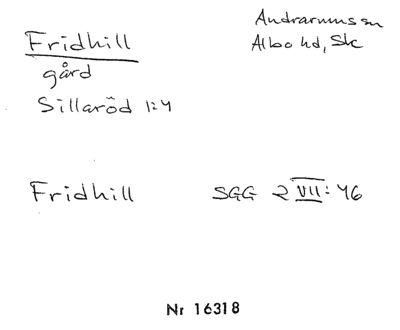 Fridhill
Andrarums sn
Albo hd, Sk
gård
Sillaröd 1:4
Fridhill SGG 2 VII: 46
Nr 16318